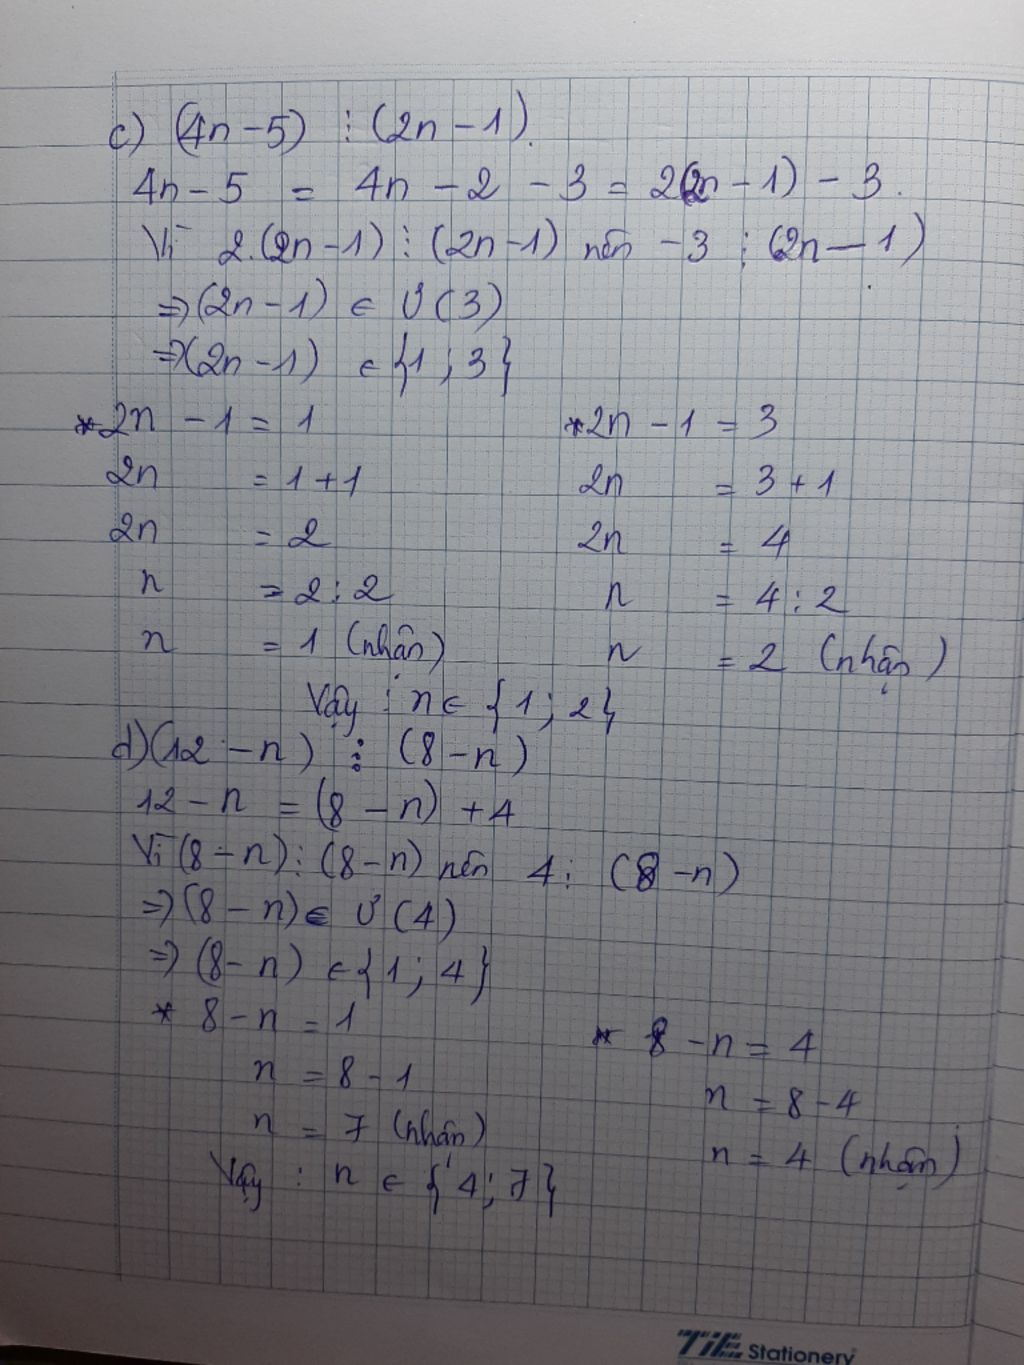 c) (4n-5) ⋮ (2n-1).
4n-5 = 4n-2-3 = 2(2n-1)-3.
Vì 2.(2n-1) ⋮ (2n-1) nên -3 ⋮ (2n-1)
⇒ (2n-1) ∈ Ư(3)
⇒ (2n-1) ∈ {1; 3}
* 2n - 1 = 1
2n = 1+1
2n = 2
n = 2:2
n = 1 (nhận)
* 2n - 1 = 3
2n = 3+1
2n = 4
n = 4:2
n = 2 (nhận)
Vậy : n ∈ {1; 2}
d) (12-n) ⋮ (8-n)
12-n = (8-n)+4
Vì (8-n) ⋮ (8-n) nên 4 ⋮ (8-n)
⇒ (8-n) ∈ Ư(4)
⇒ (8-n) ∈ {1; 4}
* 8-n = 1
n = 8-1
n = 7 (nhận)
* 8-n = 4
n = 8-4
n = 4 (nhận)
Vậy : n ∈ {4; 7}
TiE Stationery